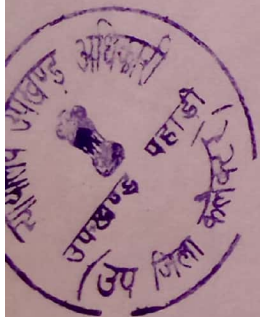 कार्यालय उपखण्ड अधिकारी
उपखण्ड पहाडी
(उप जिला कलेक्टर)